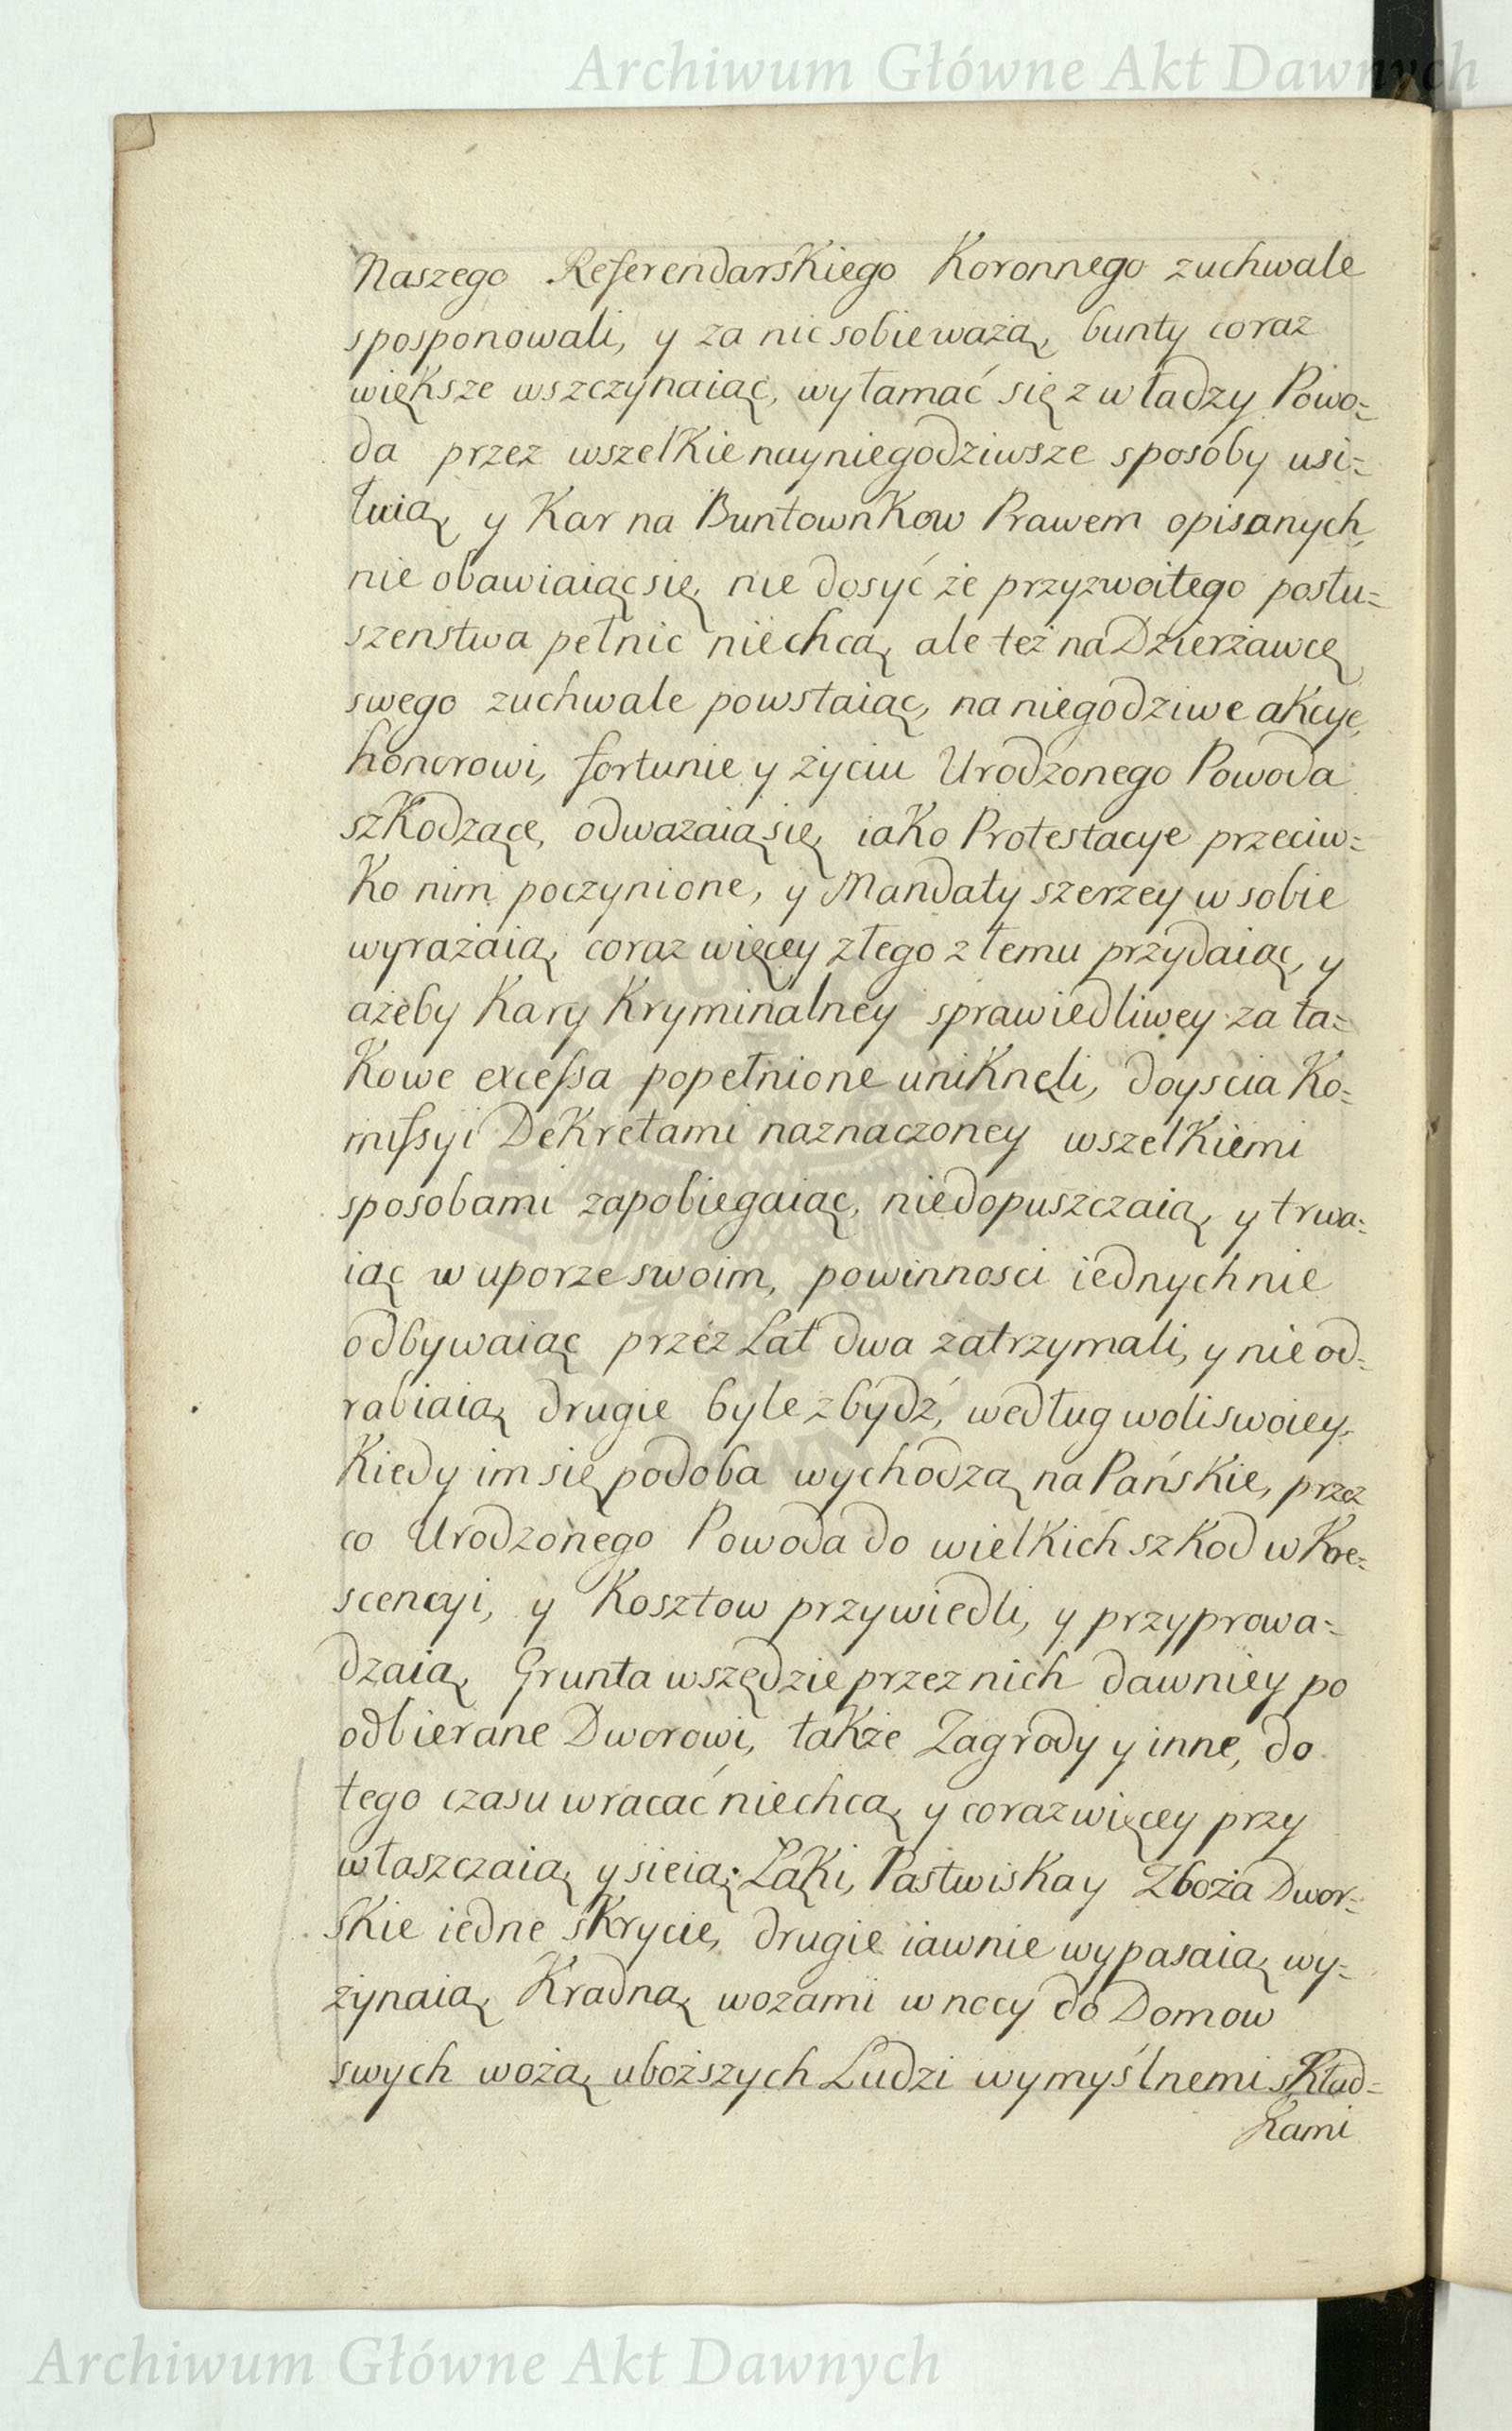 Archiwum Główne Akt Dawnych
Naszego Referendarskiego Koronnego zuchwale
sposponowali, y za nic sobie ważą, bunty coraz
większe wszczynaiąc, wyłamać się z władzy Powo=
da przez wszelkie nayniegodziwsze sposoby usi=
łuią, y Kar na Buntownkow Prawem opisanych,
nie obawiaiąc się, nie dosyć że przyzwoitego posłu=
szenstwa pełnic niechcą, ale też na Dzierżawcę
swego zuchwale powstaiąc, na niegodziwe akcye,
honorowi, fortunie y życiu Urodzonego Powoda
szkodzące, odwazaią się, iako Protestacye przeciw=
ko nim poczynione, y Mandaty szerzey w sobie
wyrażaią, coraz więcey złego złemu przydaiąc, y
ażeby Kary Kryminalney sprawiedliwey za ta=
kowe excessa popełnione uniknęli, doyscia Ko=
missyi Dekretami naznaczoney wszelkiemi
sposobami zapobiegaiąc, niedopuszczaią, y trwa=
iąc w uporze swoim, powinnosci iednych nie
odbywaiąc przez Lat dwa zatrzymali, y nie od=
rabiaią, drugie byle zbydź, według woli swoiey,
Kiedy im się podoba wychodzą na Pańskie, przez
co Urodzonego Powoda do wielkich szkod w Kre=
scencyi, y Kosztow przywiedli, y przyprowa=
dzaią, Grunta wszędzie przez nich dawniey po
odbierane Dworowi, także Zagrody y inne, do
tego czasu wracać niechcą, y coraz więcey przy
właszczaią, y sieią; Łąki, Pastwiska y Zboża Dwor=
skie iedne skrycie, drugie iawnie wypasaią, wy=
zynaią, Kradną, wozami w nocy do Domow
swych wożą, uboższych Ludzi wymyślnemi skład=
kami
Archiwum Główne Akt Dawnych